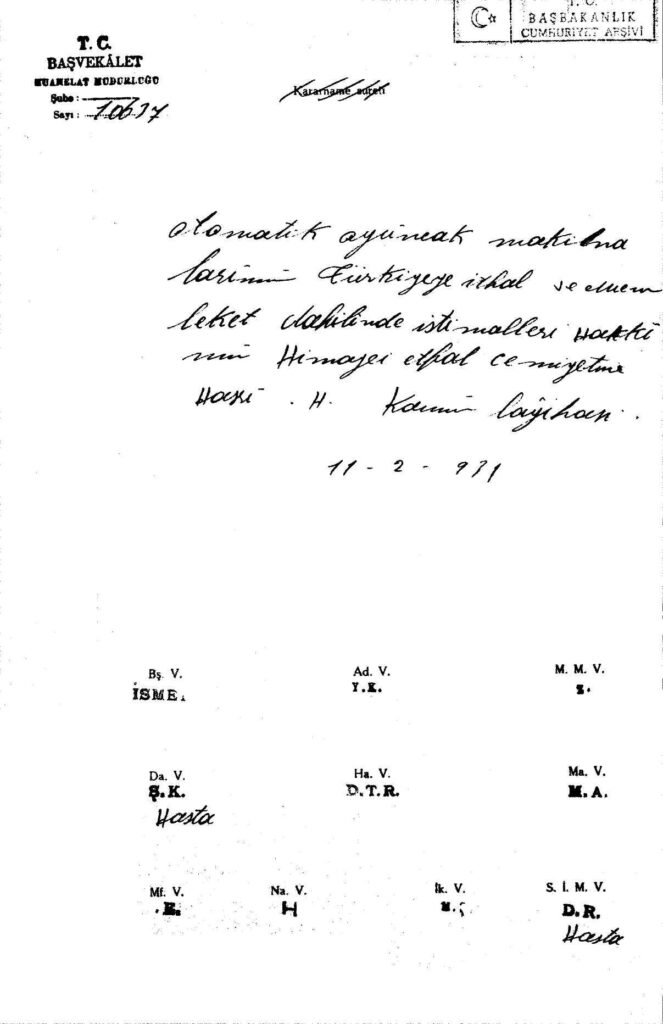 T. C.
BAŞBAKANLIK
CUMHURİYET ARŞİVİ
T. C.
BAŞVEKÂLET
MUAMELAT MÜDÜRLÜĞÜ
Şube :
Sayı : 10637
Kararname sureti
otomatik oyüncak makilna
larinin Türkiyeye ithal ve mem
leket dahilinde istimalleri Hakkı
nın Himayei etfal cemiyetine
H. Kanun layihası.
11 - 2 - 931
Bş. V.
İSME.
Ad. V.
Y.K.
M. M. V.
Z.
Da. V.
Ş.K.
Hasta
Ha. V.
D.T.R.
Ma. V.
M.A.
Mf. V.
E.
Na. V.
H
İk. V.
M.Ş
S. İ. M. V.
D.R.
Hasta